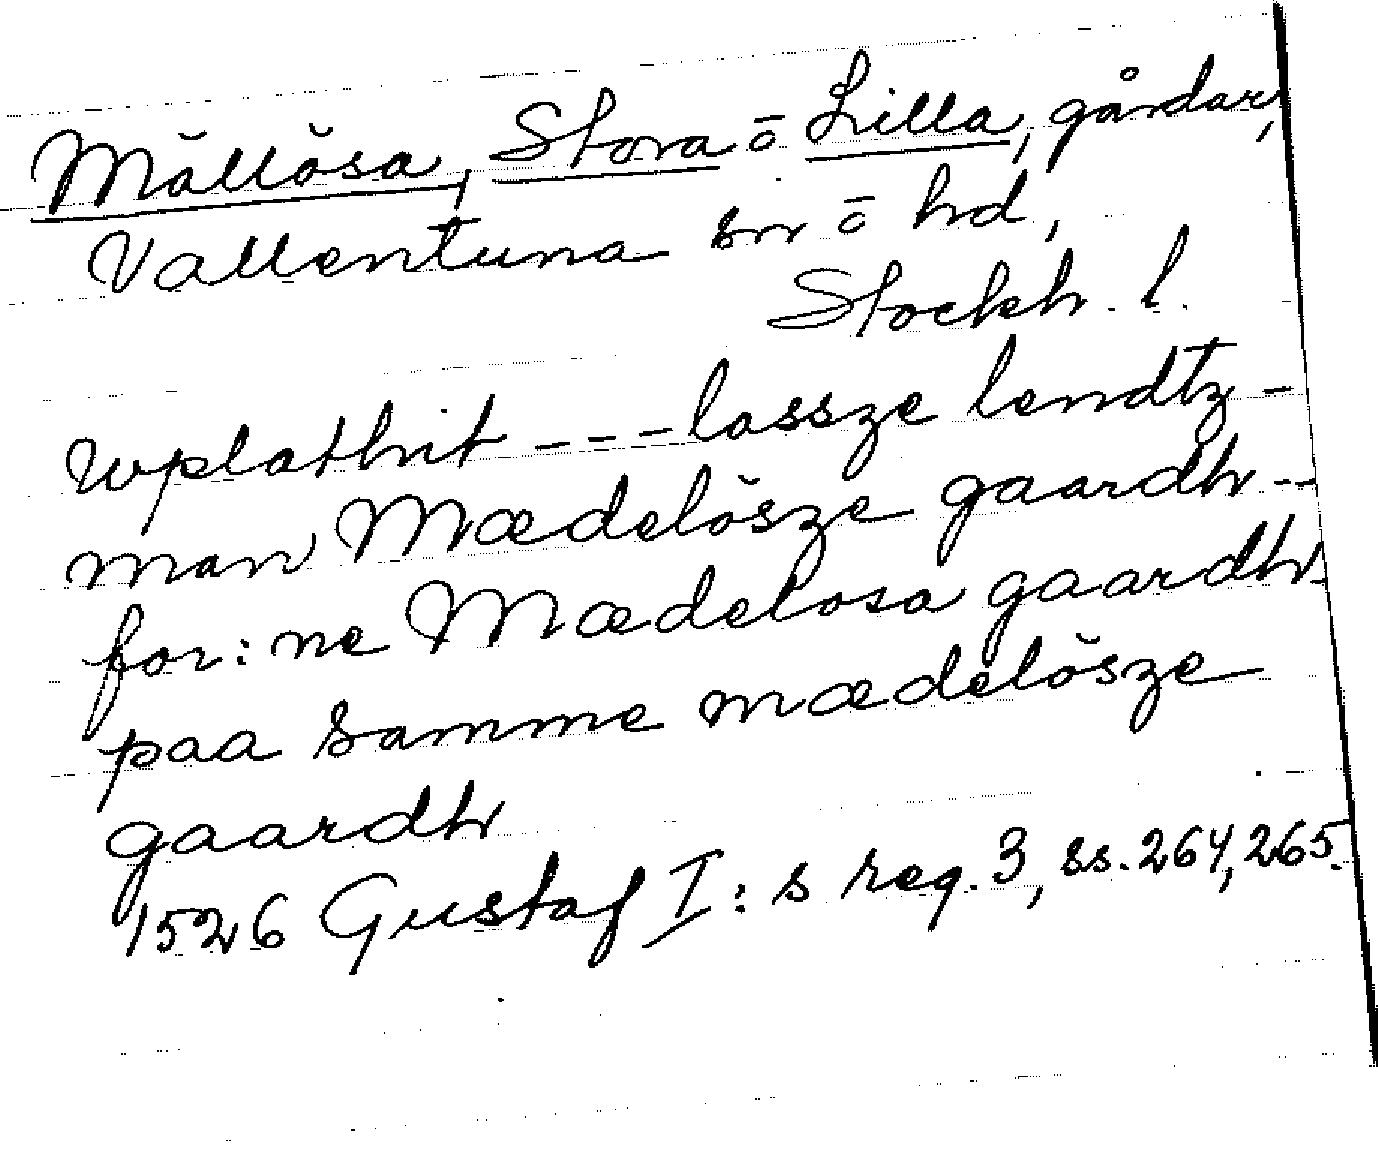 Mällösa, Stora o Lilla, gårdar,
Vallentuna sn o hd,
Stockh. l.
wplathit --- lassze lendtz-
man Mædelösze gaardh --
for: ne Mædelosa gaardh
paa samme mædelösze
gaardh
1526 Gustaf I: s reg. 3, ss. 264, 265.